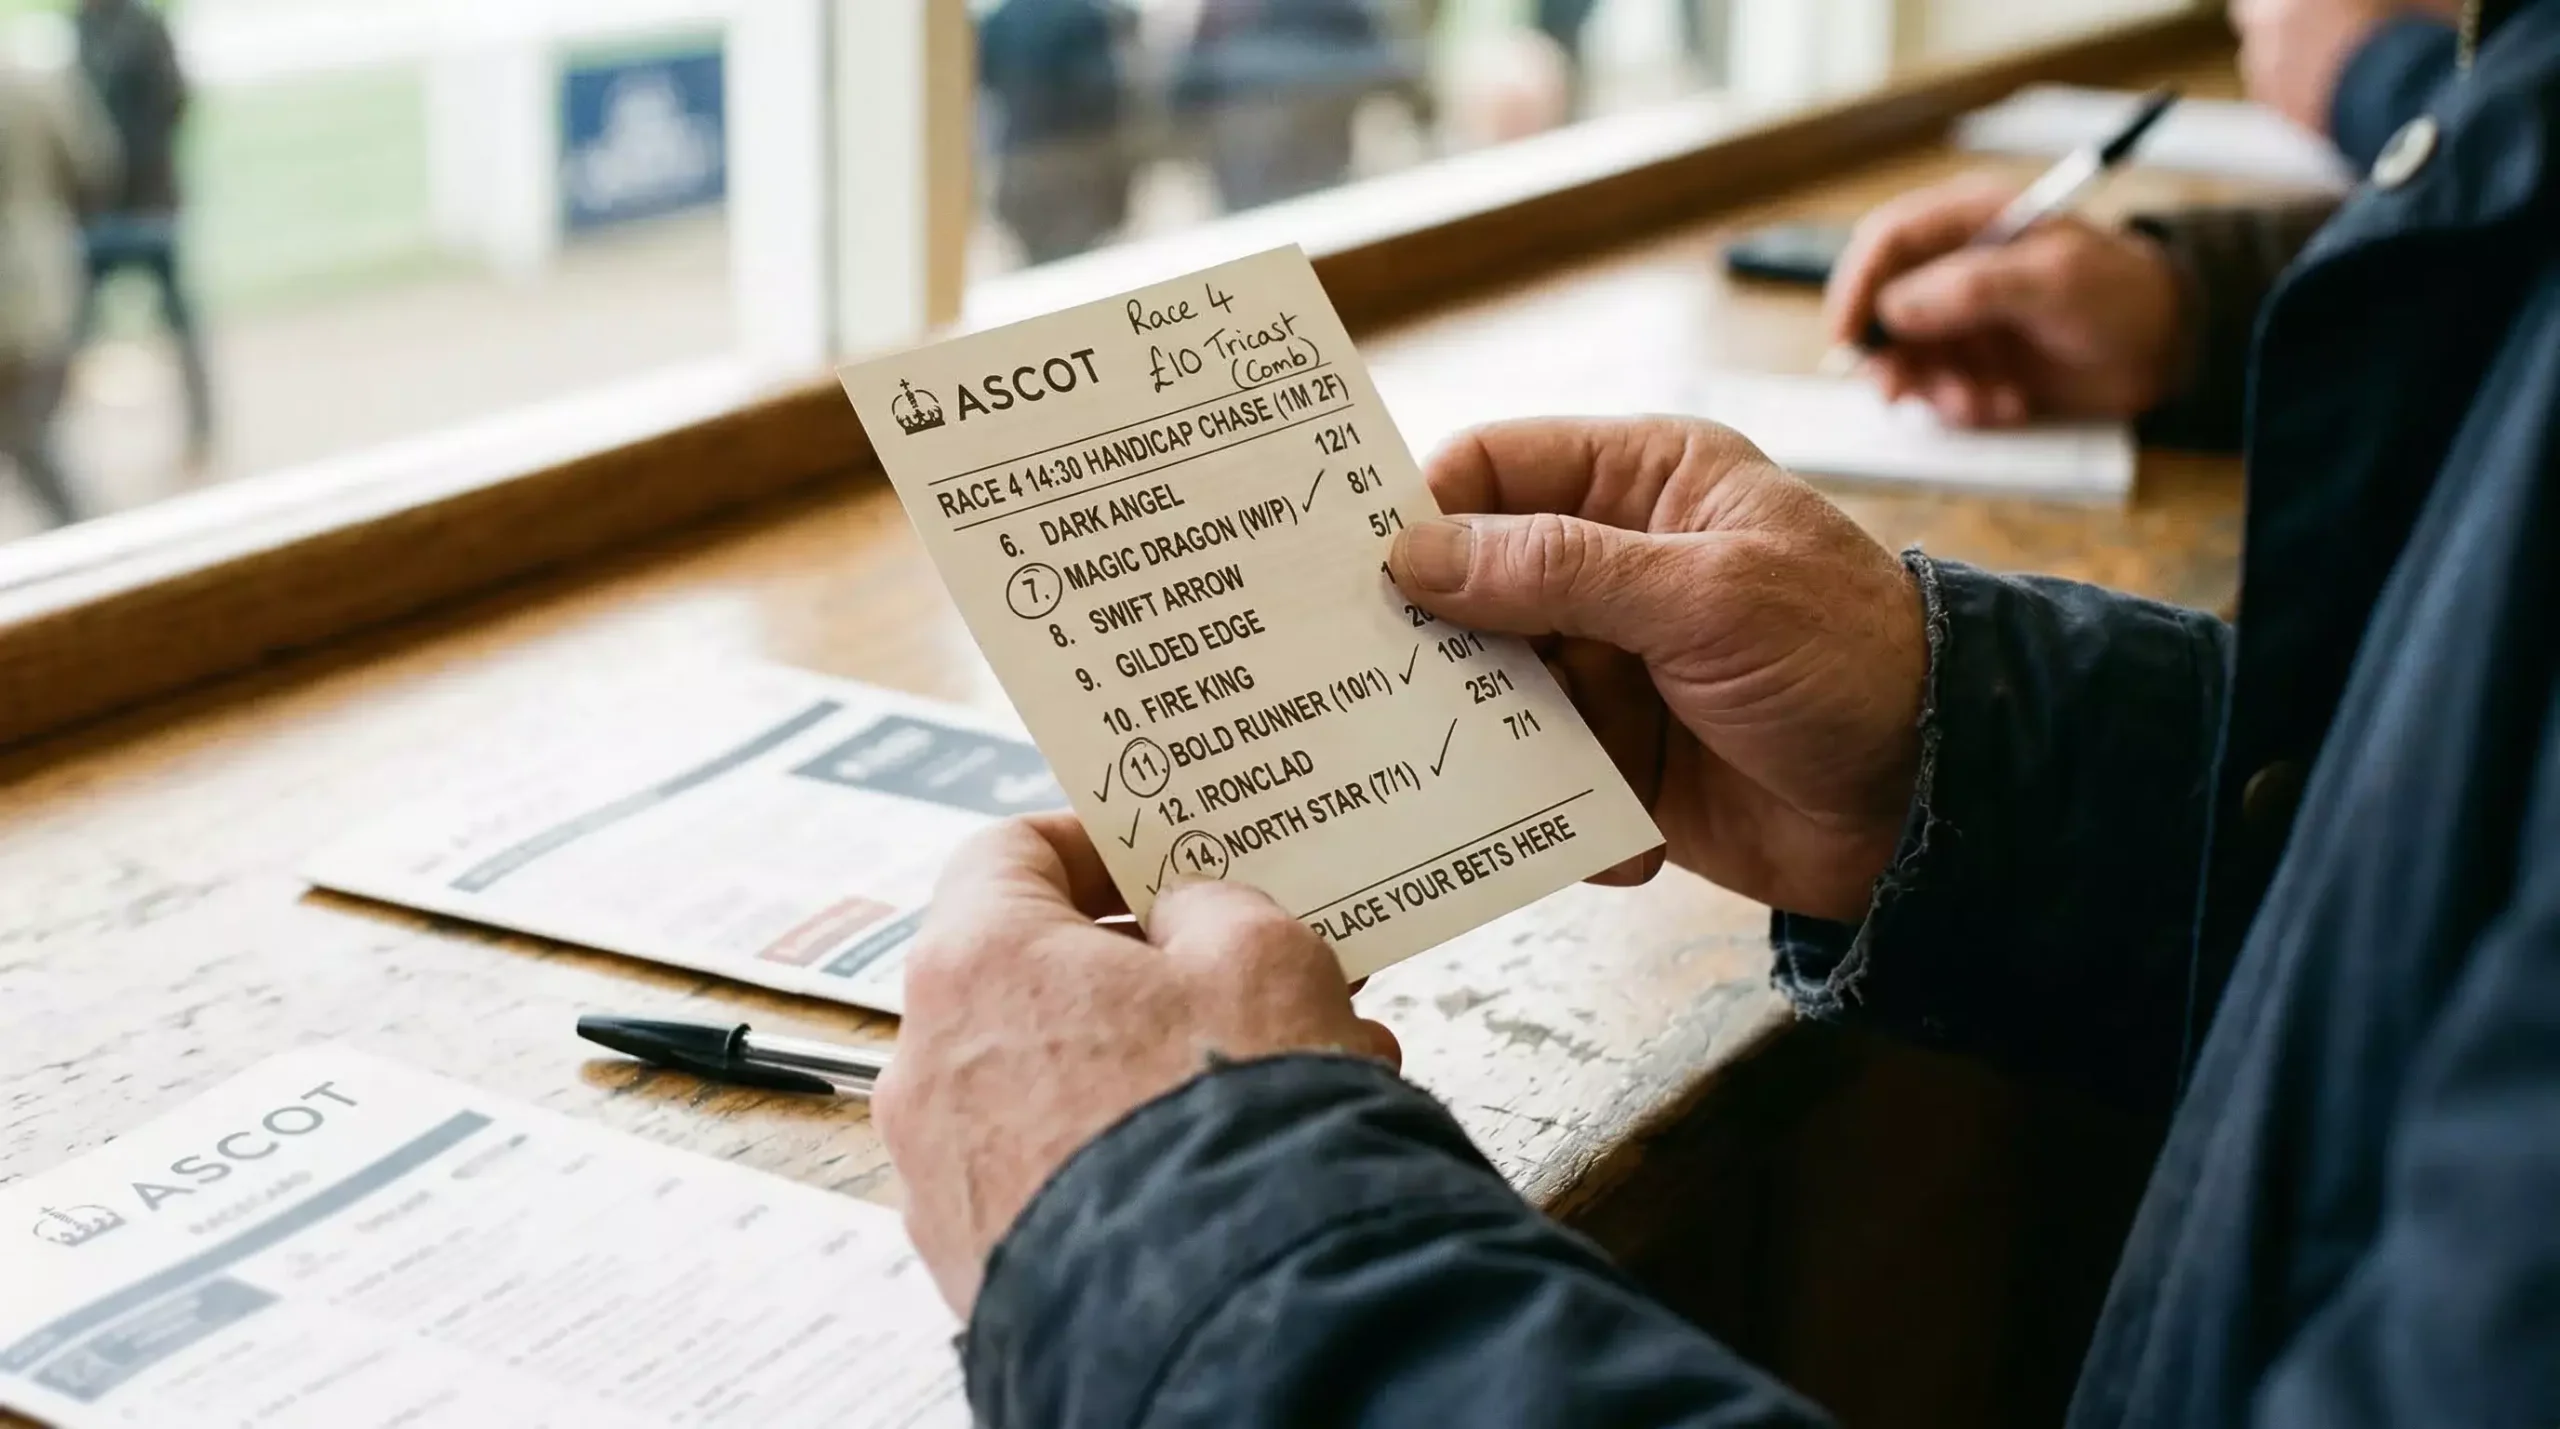 Race 4
£10 Tricast
(Comb)
ASCOT
RACE 4 14:30 HANDICAP CHASE (1M 2F)
6. DARK ANGEL 12/1
7. MAGIC DRAGON (W/P) ✓ 8/1
8. SWIFT ARROW 5/1
9. GILDED EDGE
10. FIRE KING
✓ 11. BOLD RUNNER (10/1) ✓ 10/1
✓ 12. IRONCLAD 25/1
✓ 14. NORTH STAR (7/1) ✓ 7/1
PLACE YOUR BETS HERE
ASCOT
RACECARD